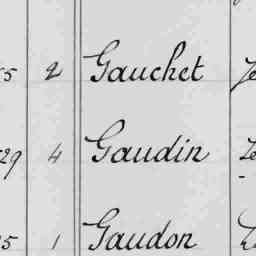 2 Gauchet
29 4 Gaudin
5 1 Gaudon